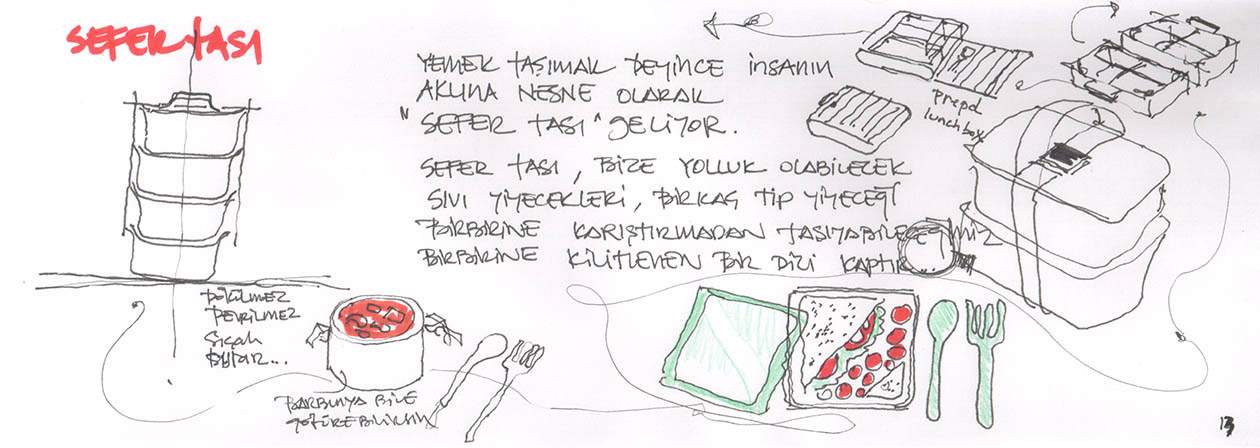 SEFER TASI
YEMEK TAŞIMAK DEYİNCE İNSANIN
AKLINA NESNE OLARAK
"SEFER TASI" GELİYOR.
SEFER TASI, BİZE YOLLUK OLABİLECEK
SIVI YİYECEKLERİ, BİRKAÇ TİP YİYECEĞİ
BİRBİRİNE KARIŞTIRMADAN TAŞIYABİLECEĞİMİZ
BİRBİRİNE KİLİTLENEN BİR DİZİ KAPTIR...
prepd
lunchbox
DÖKÜLMEZ
DEVRİLMEZ
SICAK
BARBUNYA BİLE
GÖTÜREBİLİRSİN
13